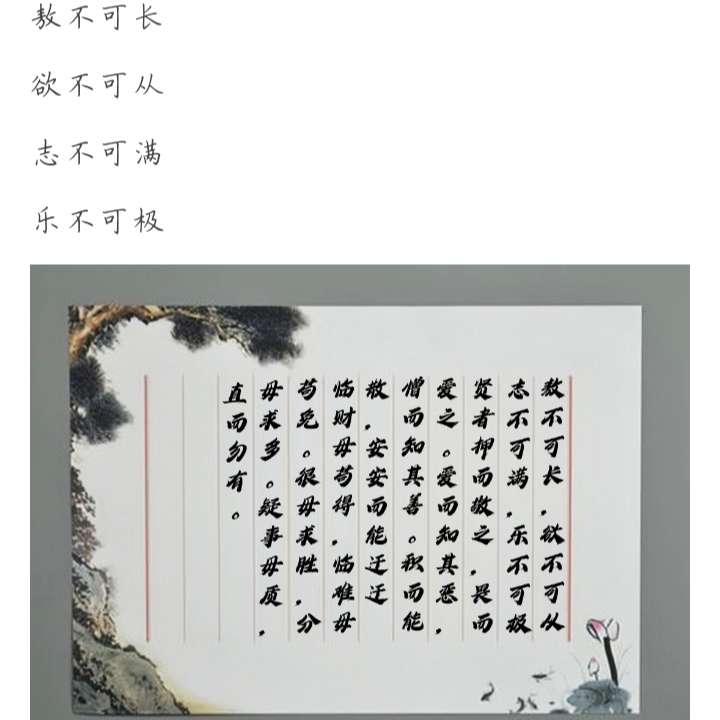 敖不可长
欲不可从
志不可满
乐不可极
敖不可长,欲不可从
志不可满,乐不可极
贤者狎而敬之,畏而
爱之。爱而知其恶,
憎而知其善。积而能
散,安安而能迁迁
临财毋苟得,临难毋
苟免。很毋求胜,分
毋求多。疑事毋质,
直而勿有。